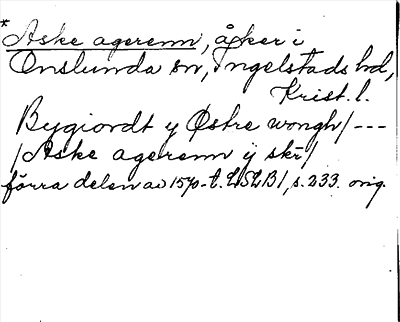 * Aske agerenn, åker i
Onslunda sn, Ingelstads hd,
Krist. l.
Bygiordt y Østre wongh / ---
/ Aske agerenn ÿ skr /
förra delen av 1570-t. LSLB1, s. 233. orig.